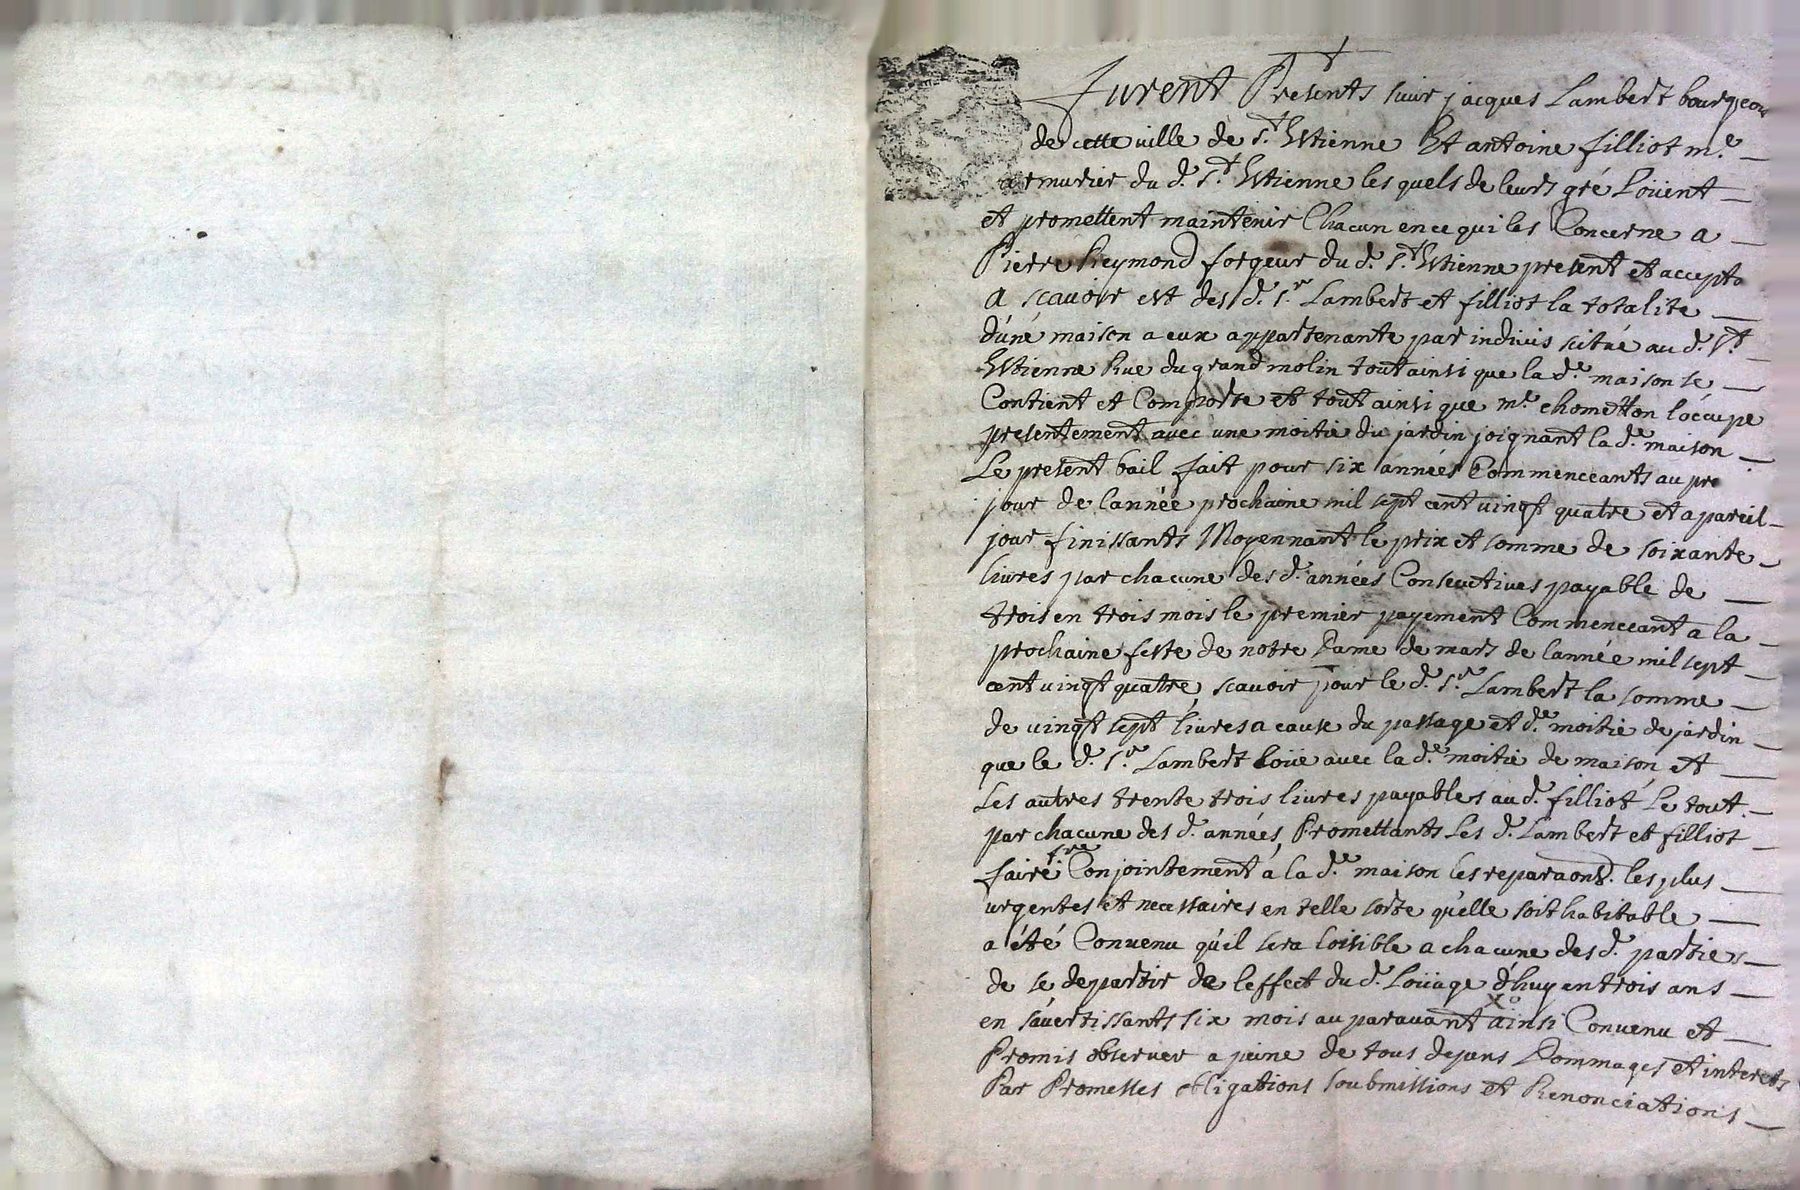 furent Presents sieur jacques Lambert bourgeois
de cette ville de St. Estienne Et antoine filliot me.
armurier du d. St. Estienne les quels de leurs gré Loüent
et promettent maintenir Chacun en ce qui les Concerne a
Pierre Reymond forgeur du d. St. Estienne present et accepta
a scavoir est des d. sr. Lambert et filliot la totalite
d'une maison a eux appartenante par indivis scitué au d. St.
Estienne Rue du grand molin tout ainsi que la de. maison se
Contient et Comporte et tout ainsi que me. chometton loccupe
presentement avec une moitie du jardin joignant la de. maison
Le present bail fait pour six années Commenceants au pre
jour de lannée prochaine mil sept cent vingt quatre et a pareil
jour finissants Moyennant le prix et somme de soixante
livres par chacune des d. années Consecutives payable de
trois en trois mois le premier payement Commenceant a la
prochaine feste de notre Dame de mars de lannée mil sept
cent vingt quatre, scavoir pour le d. sr. Lambert la somme
de vingt sept livres a cause du passage et de. moitie de jardin
que le d. sr. Lambert loüe avec la de. moitie de maison et
Les autres trente trois livres payables au d. filliot Le tout
par chacune des d. années, Promettants Les d. Lambert et filliot
faire Conjointement a la de. maison les reparaons. les plus
urgentes et necessaires en telle sorte qu'elle soit habitable
a été Convenu qu'il sera loisible a chacune des d. parties
de se departir de leffect du d. Loüage d'huy en trois ans
en s'avertissants six mois au paravant ainsi Convenu et
Promis observer a peine de tous depans Dommages et interets
Par Promesses obligations soubmissions et Renonciations